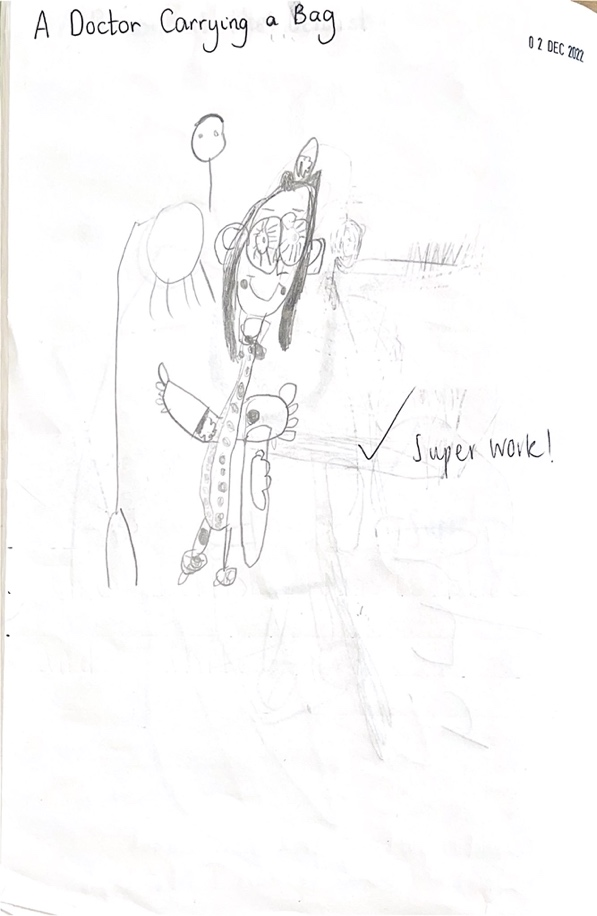 A Doctor Carrying a Bag
02 DEC 2022
Super work!